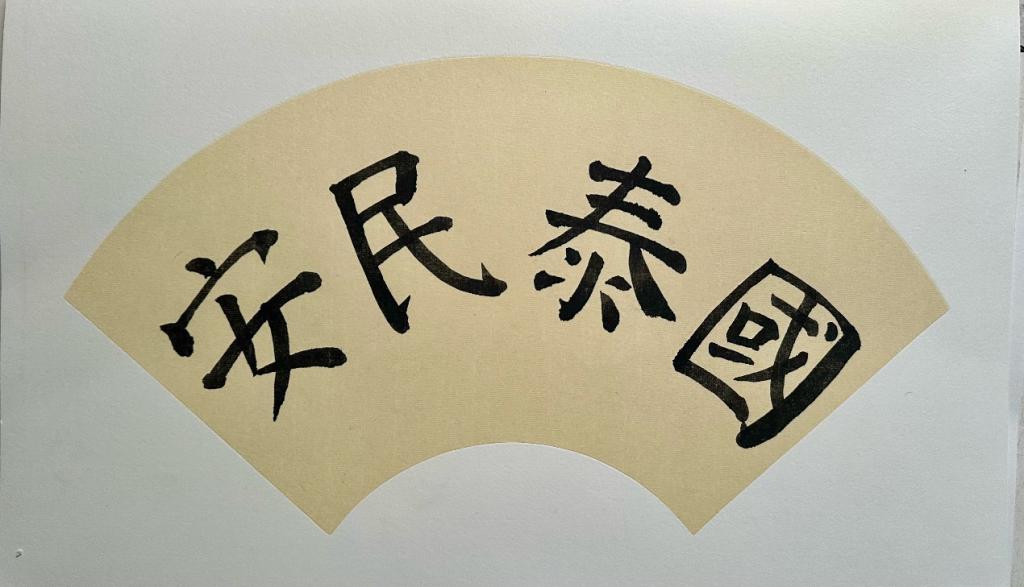 國泰民安